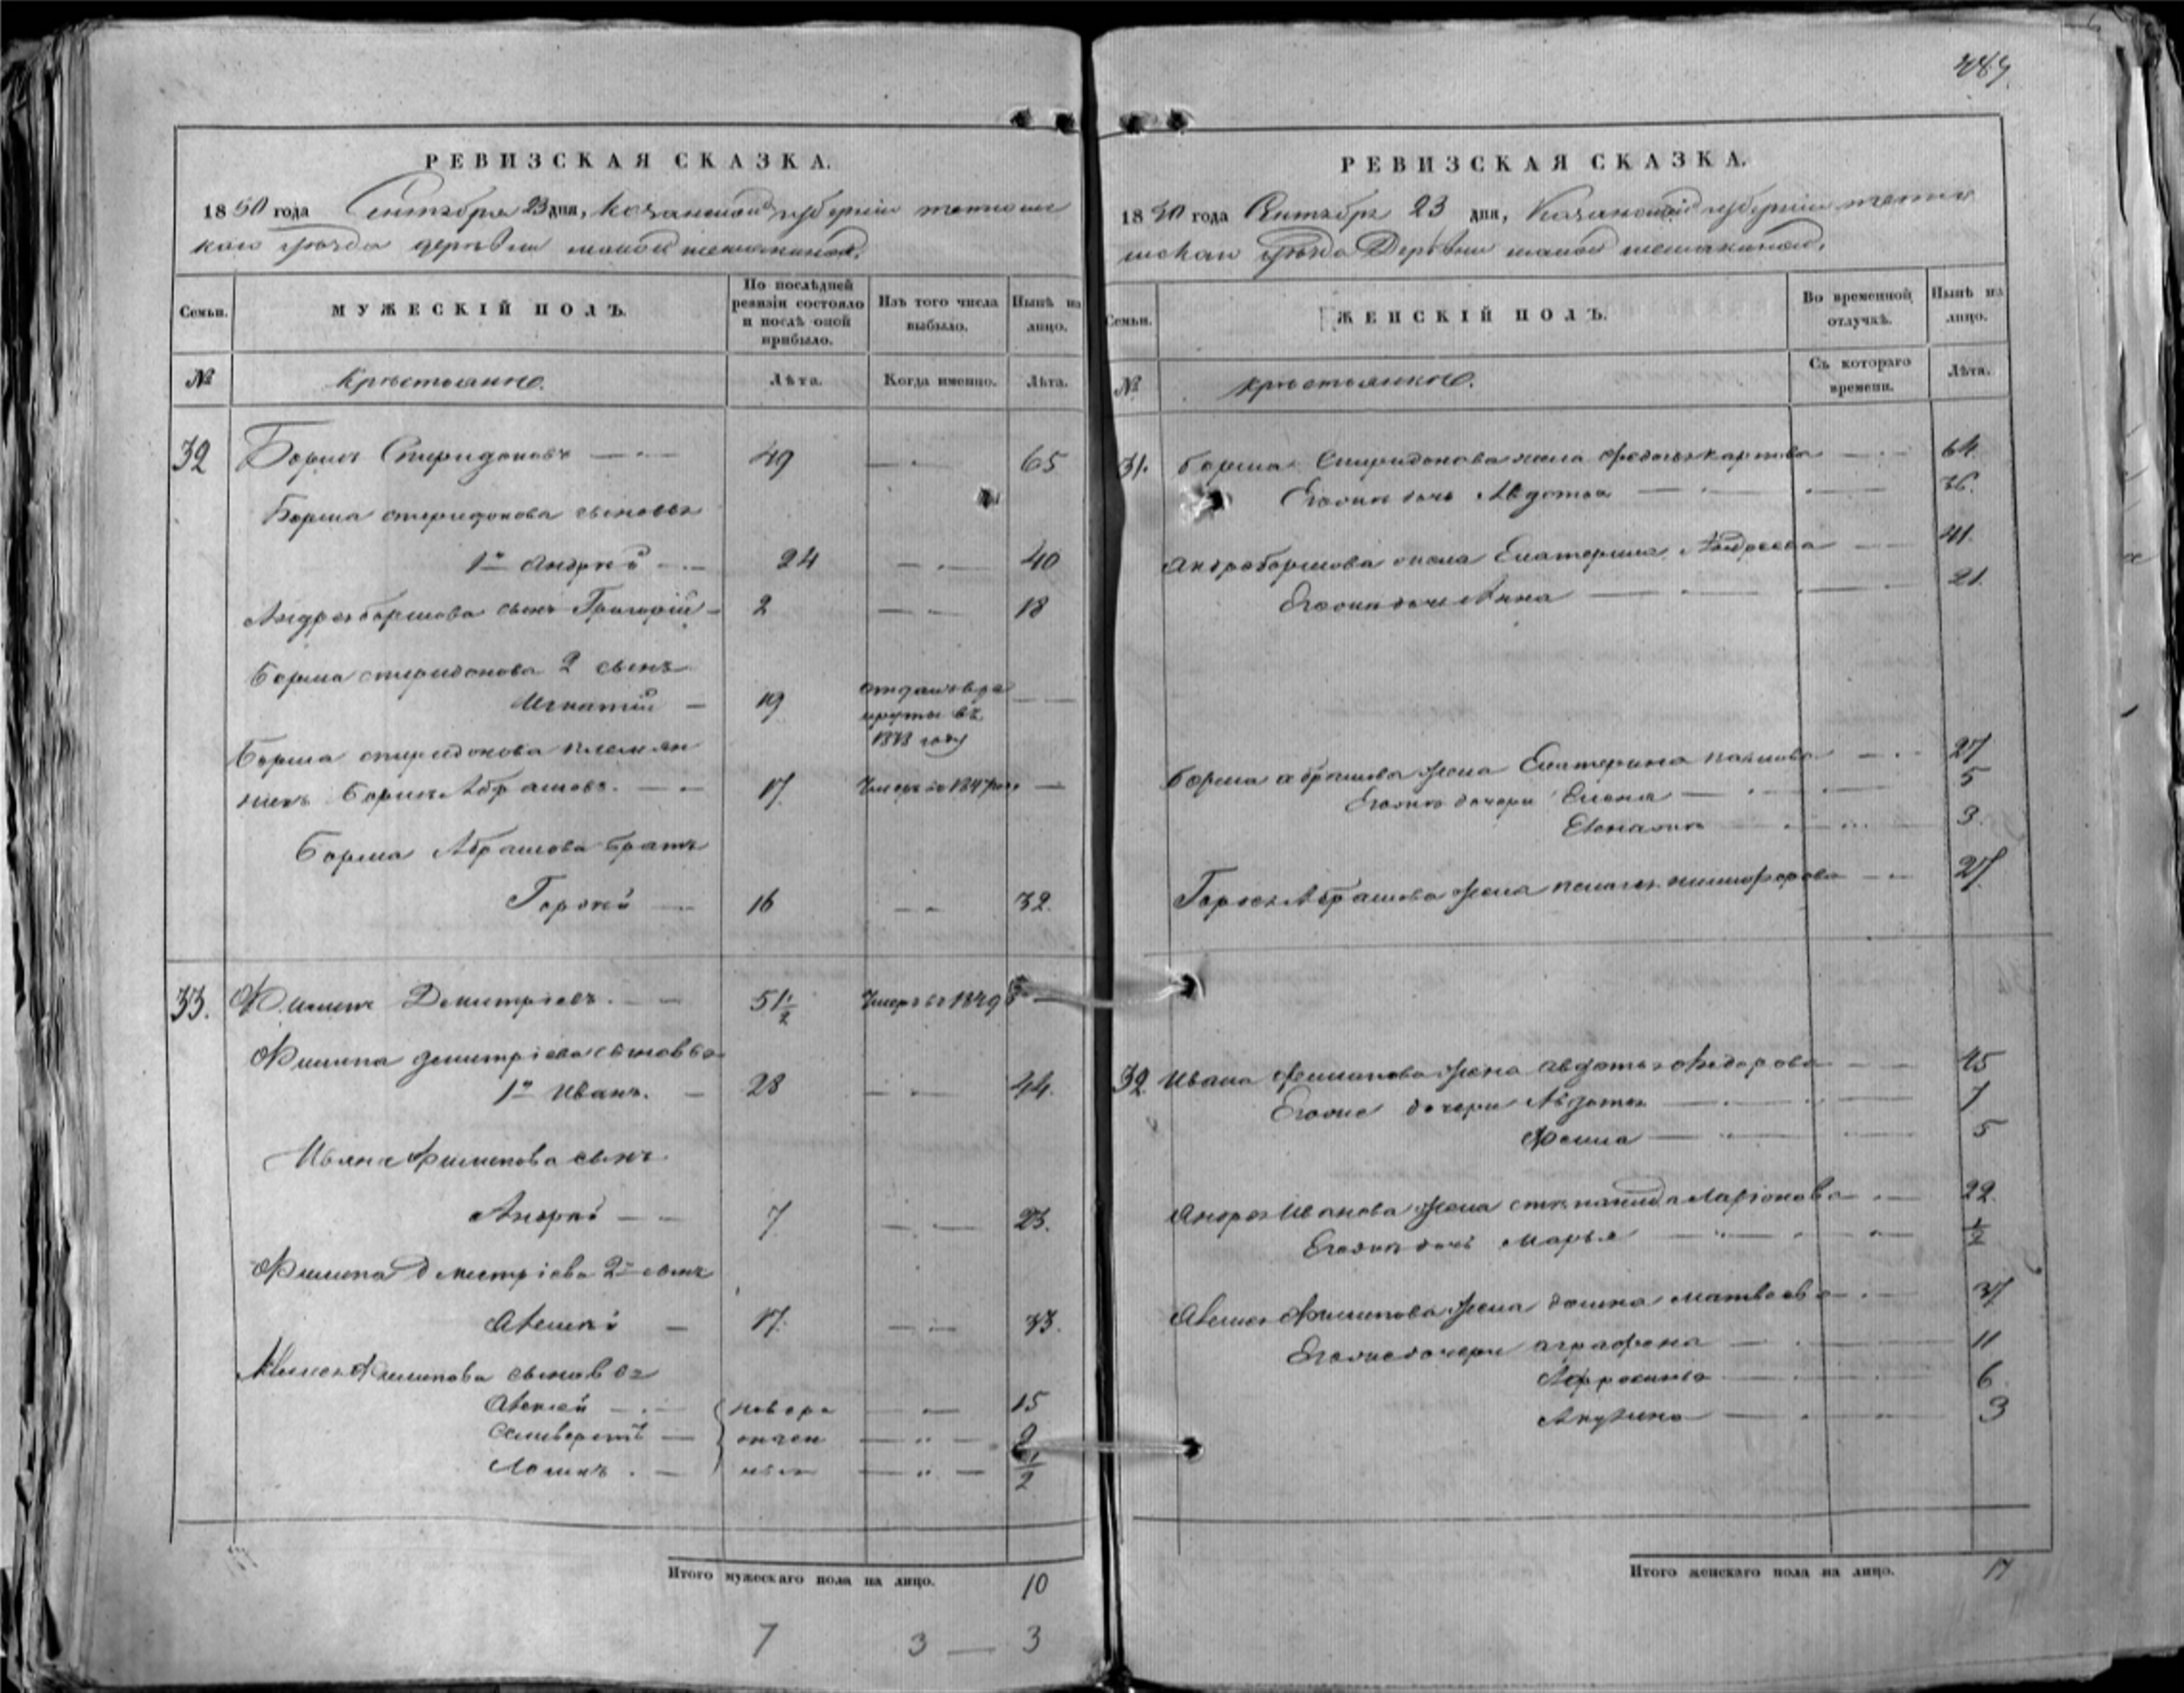 484
РЕВИЗСКАЯ СКАЗКА.
1850 года Сентября 23 дня, Казанской губернии тетюшс
каго уѣзда деревни малой шемякиной.
Семьи.
МУЖЕСКІЙ ПОЛЪ.
По послѣдней ревизіи состояло и послѣ оной прибыло.
Изъ того числа выбыло.
Нынѣ на лицо.
№
Крестьянне.
Лѣта.
Когда именно.
Лѣта.
32 Борисъ Спиридоновъ 49 65
Бориса спиридонова сыновья
1й Андрей 24 40
Андрея борисова сынъ Григорій 2 18
Бориса спиридонова 2 сынъ
Игнатій 19 отданъ въ ре
круты въ
Бориса спиридонова племян
никъ Борисъ Абрамовъ. 17 Умеръ въ 1847
Бориса Абрамова братъ
Гордей 16 32.
33. Филипъ Демитріевъ. 51 1/2 Умеръ въ 1849
Филипа демитріева сыновья
1й Иванъ. 28 44.
Ивана Филипова сынъ
Андрей 7 23.
Филипа Демитріева 2й сынъ
17. 33.
Филипова сыновья
Алексѣй новоро 15
Селиверстъ жден
1/2
Итого мужескаго пола на лицо. 10
7 3 — 3
РЕВИЗСКАЯ СКАЗКА.
1850 года Сентября 23 дня, Казанской губерніи тетю
шскаго уѣзда Деревни малой шемякиной.
Семьи.
ЖЕНСКІЙ ПОЛЪ.
Во временной отлучкѣ.
Нынѣ на лицо.
№
крестьянне.
Съ котораго времени.
Лѣта.
31. Бориса Спиридонова жена Федосья карпова 64
дочь Авдотья 36.
Андрея борисова жена Екатерина Андреева 41.
дочь Анна 21.
Бориса абрамова жена Екатерина 27
дочери Елена 5
3.
Гордея Абрамова жена пелагея никифорова 27.
32. Ивана филипова жена авдотья Федорова 45
дочери Авдотья 7
5
Андрея Иванова жена степанида Ларіонова 22.
дочь марья 1/2
Филипова жена домна матвеева 37
дочери аграфена 11
Афросинья 6
Акулина 3
Итого женскаго пола на лицо. 17